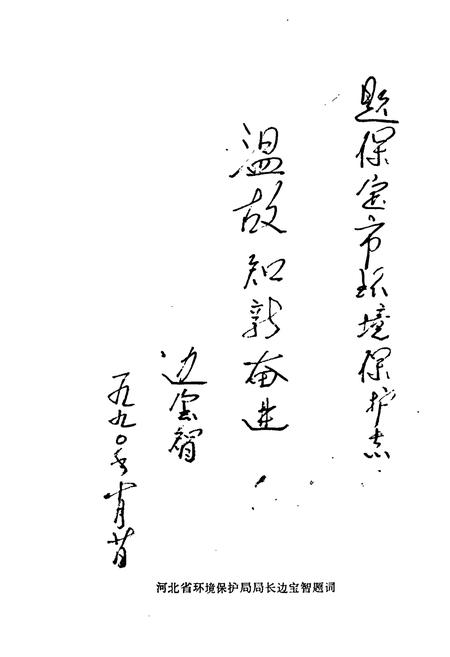 题保定市环境保护志
温故知新奋进
边宝智
一九九〇年
河北省环境保护局局长边宝智题词